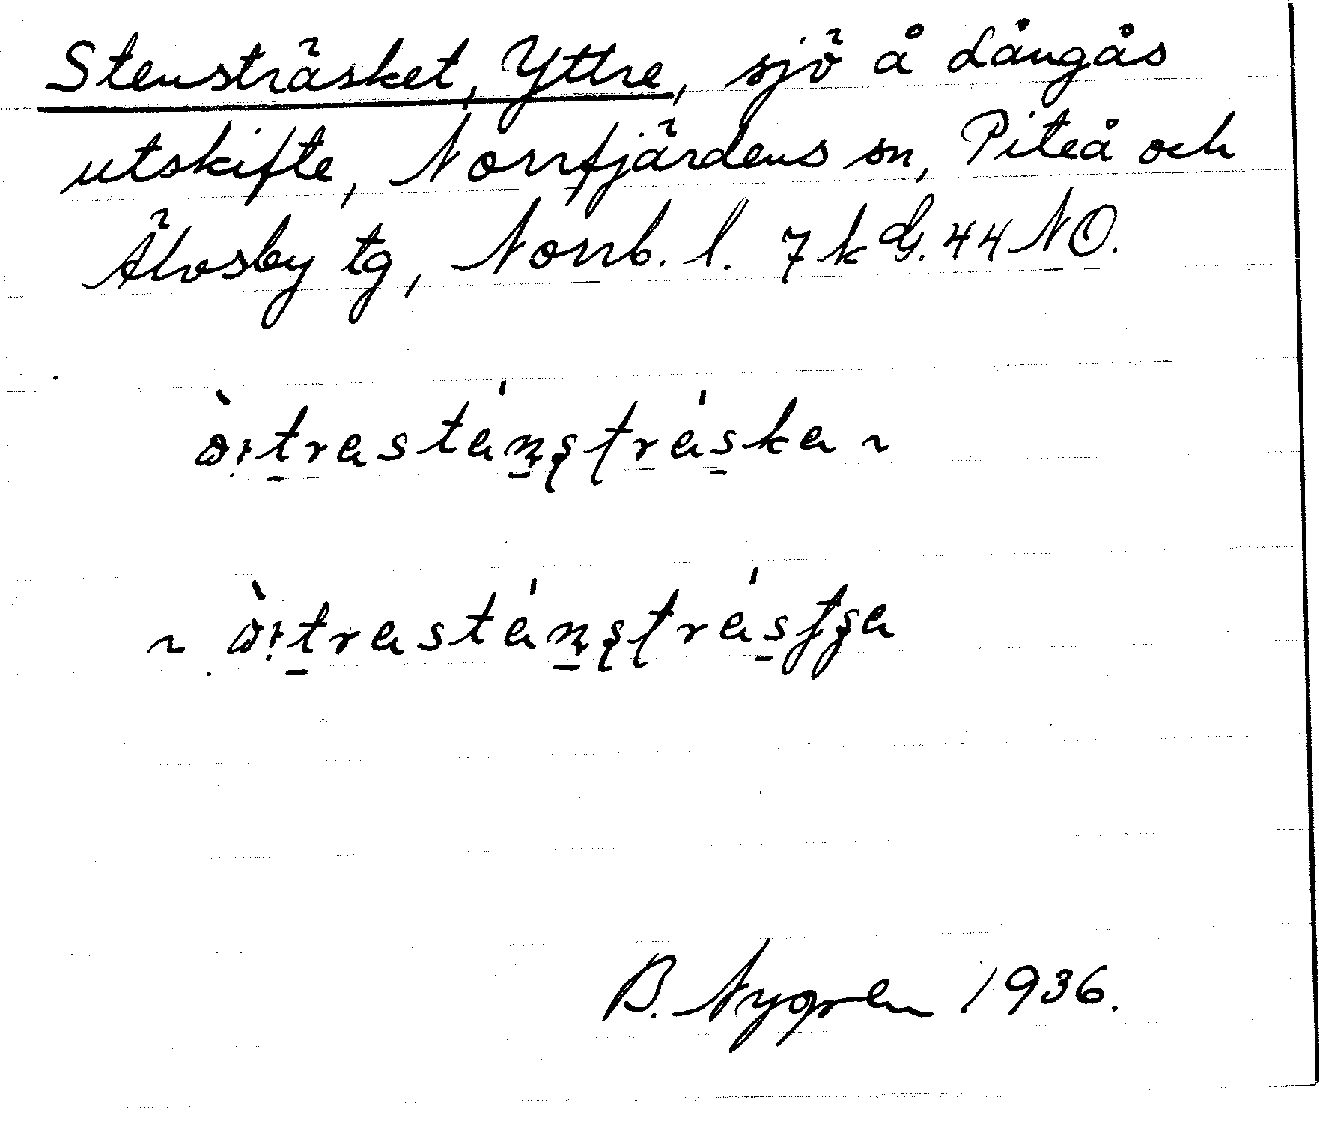 Stensträsket, Yttre, sjö å Långås
utskifte, Norrfjärdens sn, Piteå och
Älvsby tg, Norrb. l. 7 k G. 44 NO.
B. Nygren 1936.